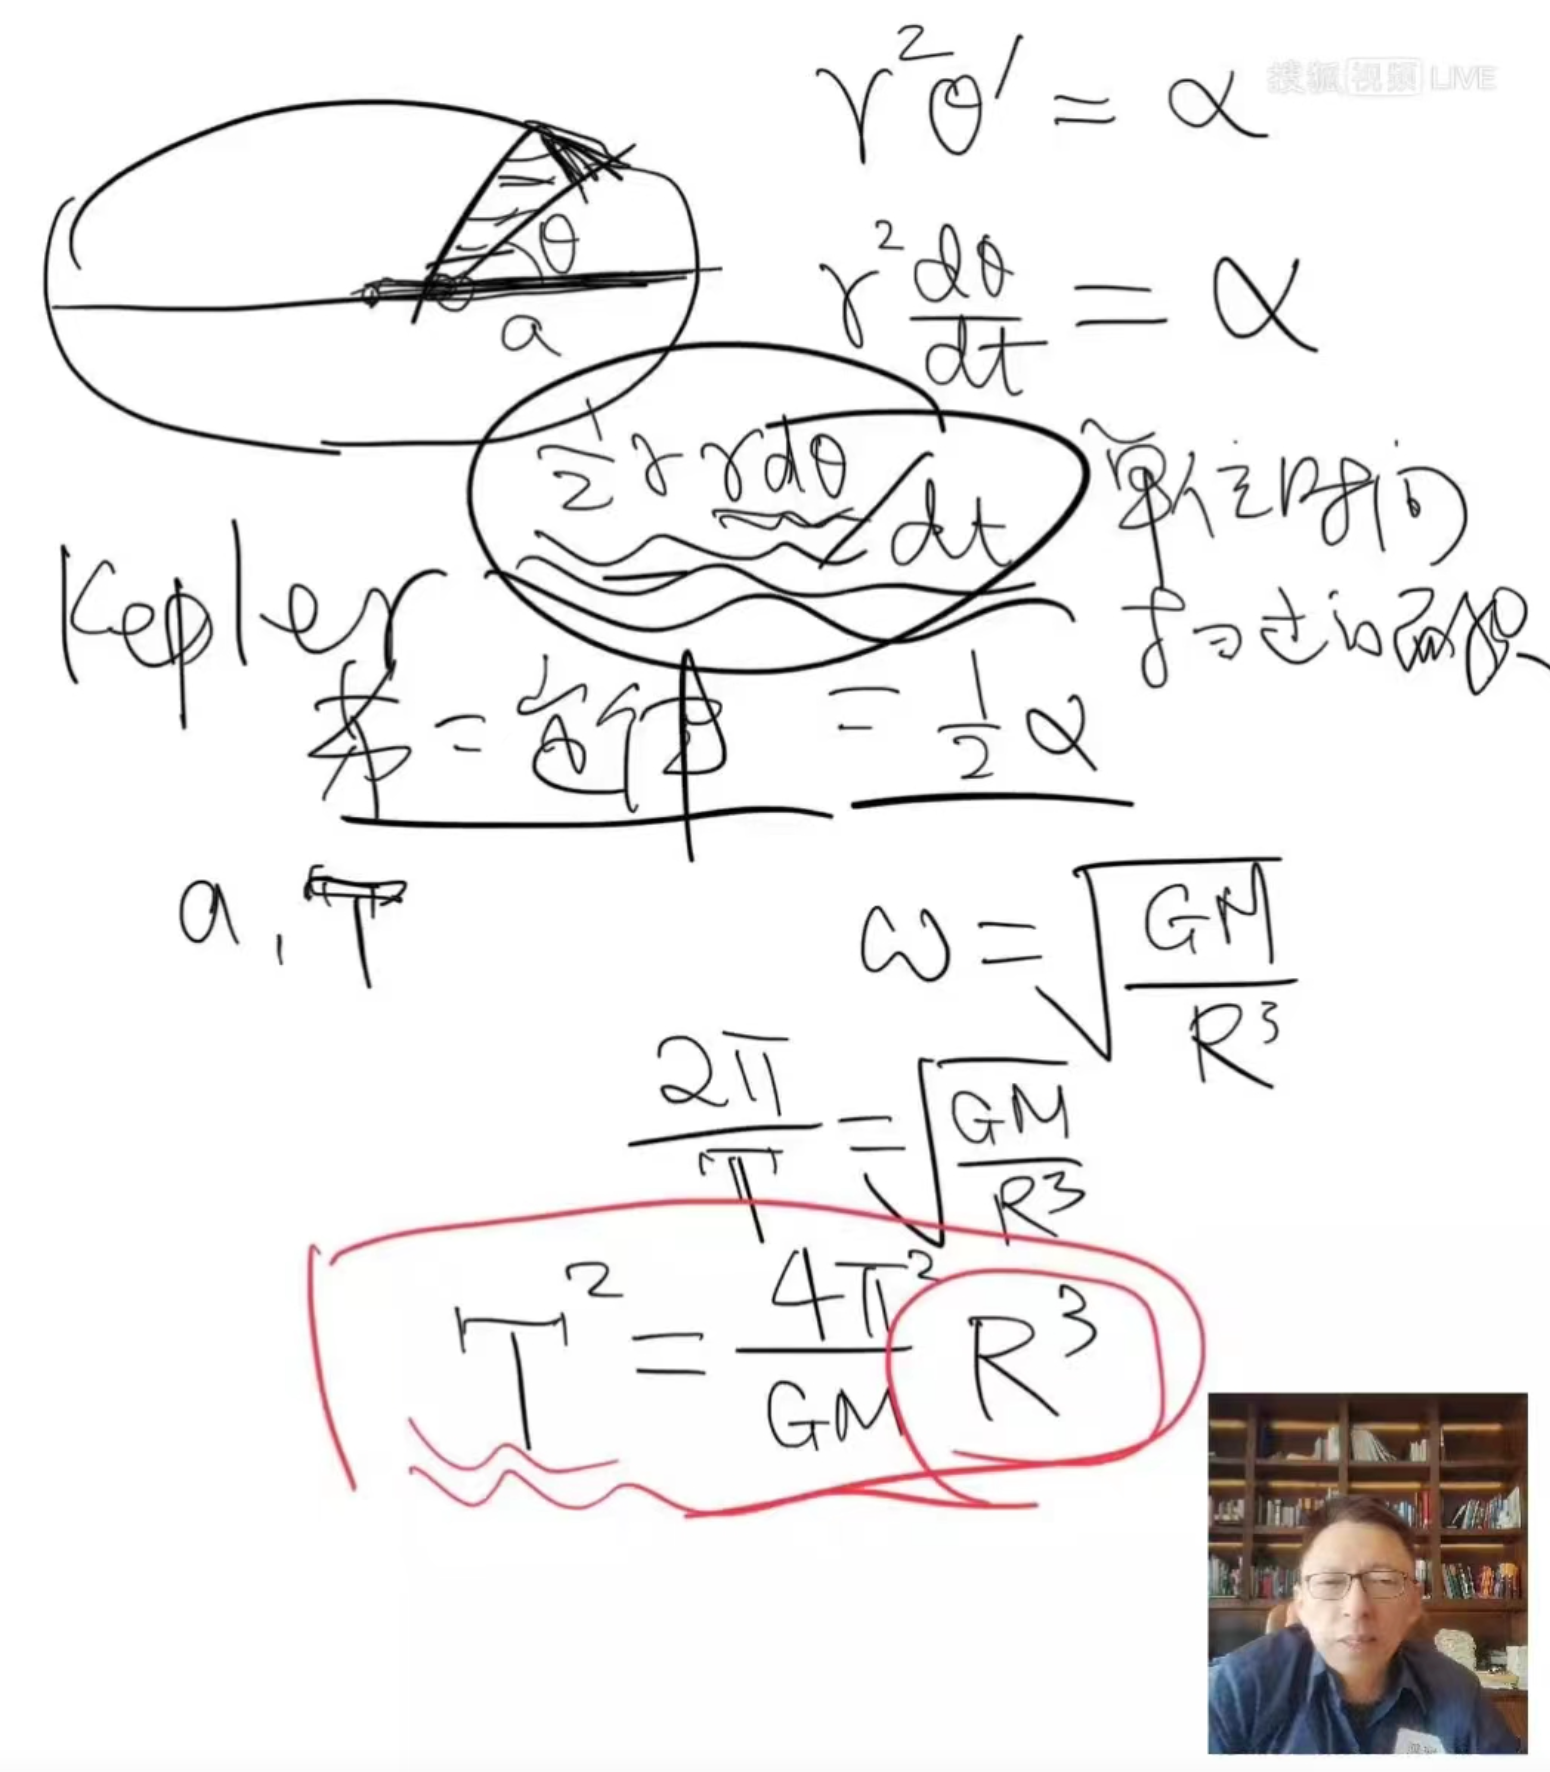 r²θ′ = α
搜狐视频 LIVE
θ
a
r² dθ/dt = α
½ r r dθ / dt
单位时间
扫过的面积
Kepler
= ½ α
a, T
ω = √(GM/R³)
2π/T = √(GM/R³)
T² = 4π²/GM R³